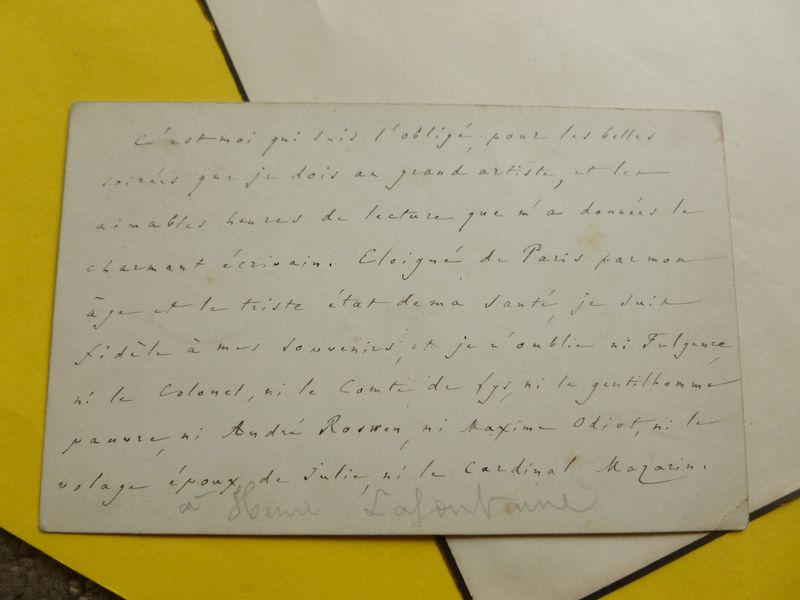 C'est moi qui suis l'obligé, pour les belles
soirées que je dois au grand artiste, et les
aimables heures de lecture que m'a données le
charmant écrivain. Eloigné de Paris par mon
âge et le triste état de ma santé, je suis
fidèle à mes souvenirs, et je n'oublie ni Fulgence,
ni le Colonel, ni le Comte de Lys, ni le gentilhomme
pauvre, ni André Roswen, ni Maxime Odiot, ni le
volage époux de Julie, ni le Cardinal Mazarin.
à Henri Lafontaine